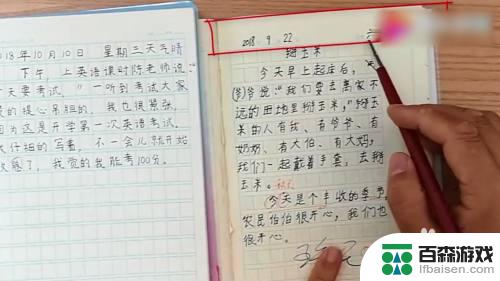 2018年10月10日 星期三天气晴
下午，上英语课时陈老师说
天要考试。”一听到考试大家
的提心吊胆的，我也很紧张，
因为这是开学第一次英语考试。
大仔细的写着，不一会儿就开始
了，我觉的我能考100分。
2018 9 22 六
掰玉米
今天早上起床后，
爷爷说：“我们要去离家不
远的田地里掰玉米，”掰玉
米的人有我、有爷爷、有
奶奶、有大伯、有大妈，
我们一起戴着手套，去掰
玉米。
今天是个丰收的季节，
农民伯伯很开心，我们也
很开心。
百森游戏
lfbaisen.com